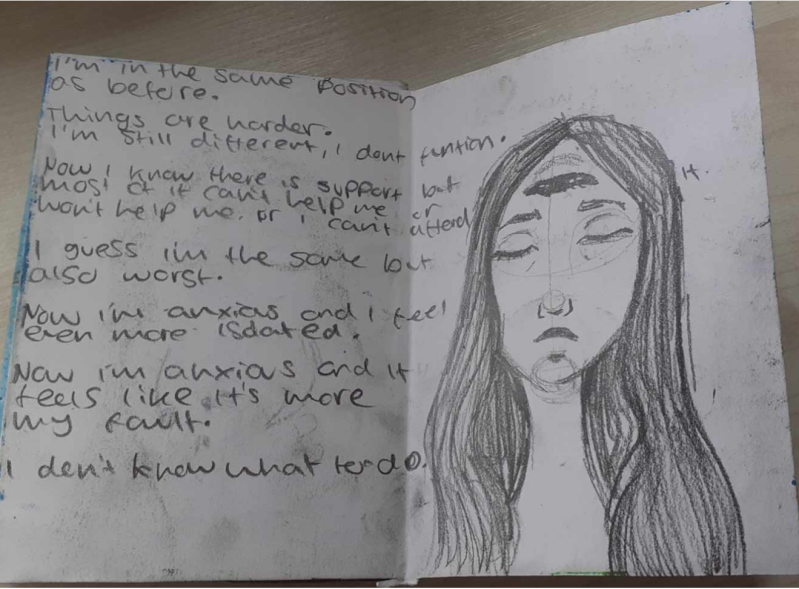 I'm in the same position
as before.
Things are harder.
I'm still different, I dont funtion.
Now I know there is support but
most of it can't help me or
won't help me. or I can't afford it.
I guess i'm the same but
also worst.
Now i'm anxias and I feel
even more isolated.
Now i'm anxias and it
feels like it's more
my fault.
I don't know what to do.